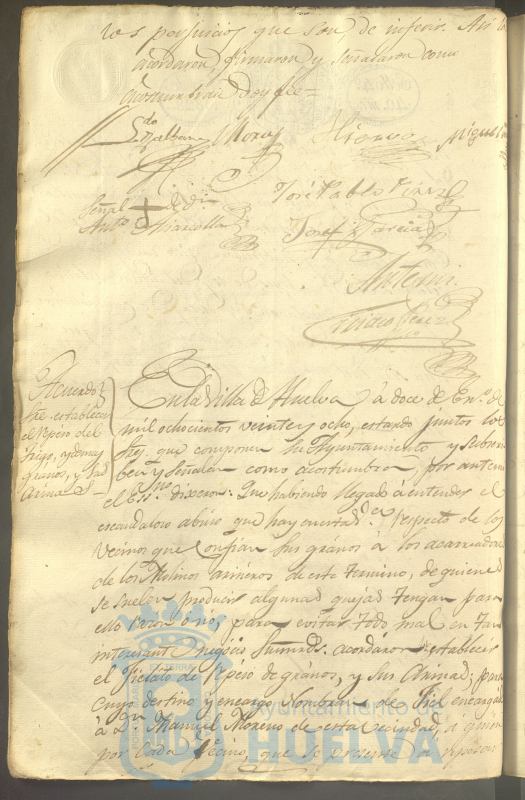 los perjuicios que son de inferir. Así lo
acordaron firmaron y señalaron como
acostumbran doy fee=
Ldo Balbuena Mora Hierro Miguel
Señal + de
Anto Mansilla
José Pablo Pérez
Josef García
Ante mi
Acuerdo
sre establecer
el Repeso del
trigo, y demas
granos, y sus
Arinas=
En la Villa de Huelva á doce de Eno. de
mil ochocientos veinte y ocho, estando juntos los
Sres. que componen su Ayuntamiento y subscri
ben y Señalan como acostumbran, por ante mi
el Essno. dixeron: Que habiendo llegado á entender el
escandaloso abuso que hay en esta respecto de los
vecinos que confian sus granos á los acarreadores
de los Molinos arineros de este termino, de quienes
se suelen producir algunas quejas tengan para
ello razon ó no, para evitar todo mal en tan
interesante negocio sus mrds. acordáron establecer
el Fielato de Repeso de granos, y sus Arinas; para
cuyo destino y encargo nombran de Fiel encargado
á Dn. Manuel Moreno de esta vecindad, á quien
por cada vecino, que se presente á reposar
Ayuntamiento de
HUELVA